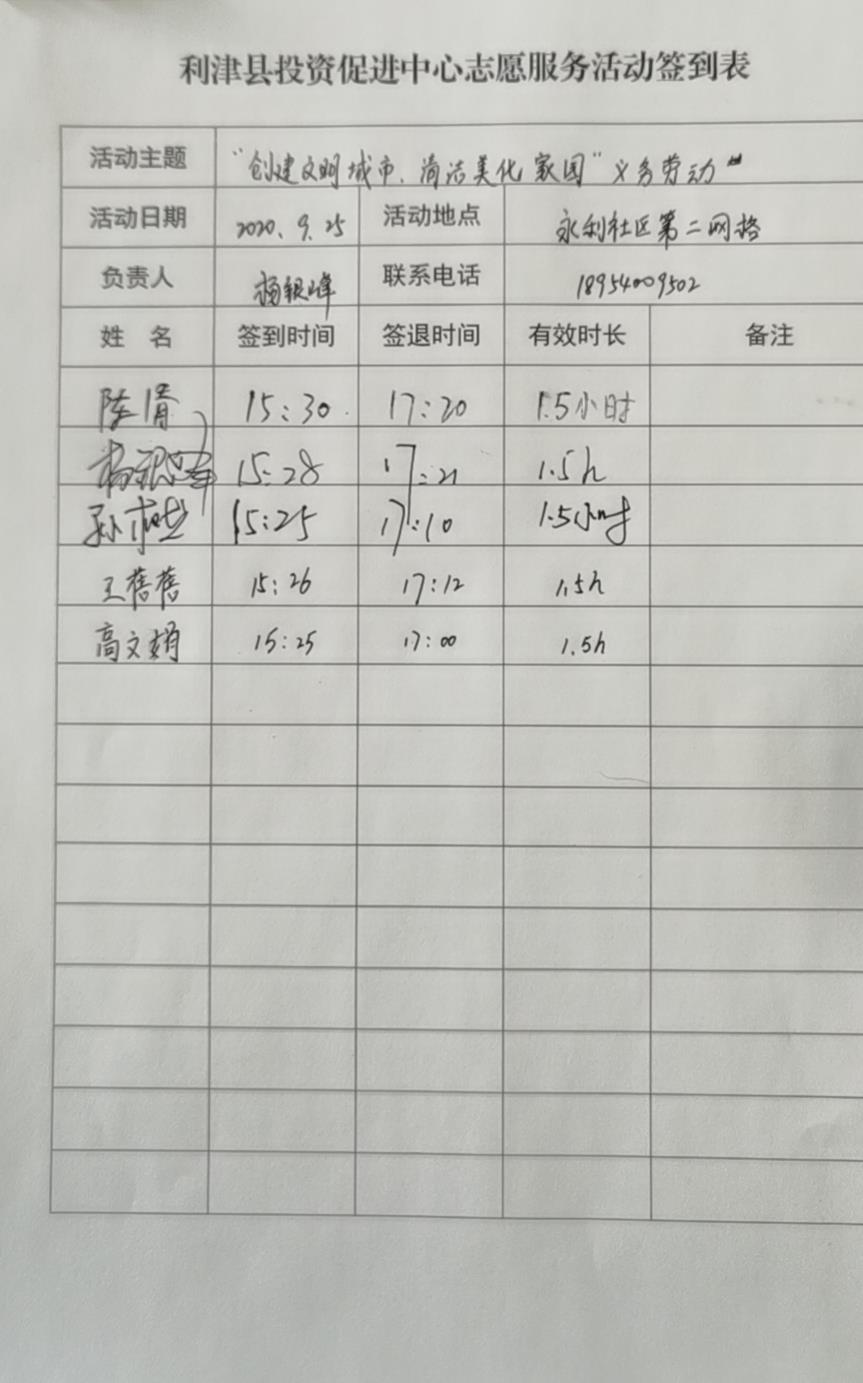 利津县投资促进中心志愿服务活动签到表
活动主题 “创建文明城市、清洁美化家园”义务劳动
活动日期 2020.9.25 活动地点 永利社区第二网格
负责人 杨银峰 联系电话 18954009502
姓 名 签到时间 签退时间 有效时长 备注
15:30 17:20 1.5小时
杨银峰 15:28 17:21 1.5h
15:25 17:10 1.5小时
王蓓蓓 15:26 17:12 1.5h
高文娟 15:25 17:00 1.5h